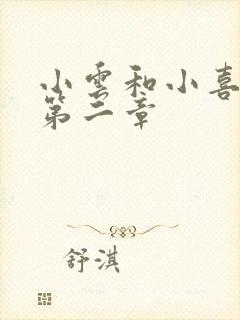 小雲和小喜
第二章
舒淇